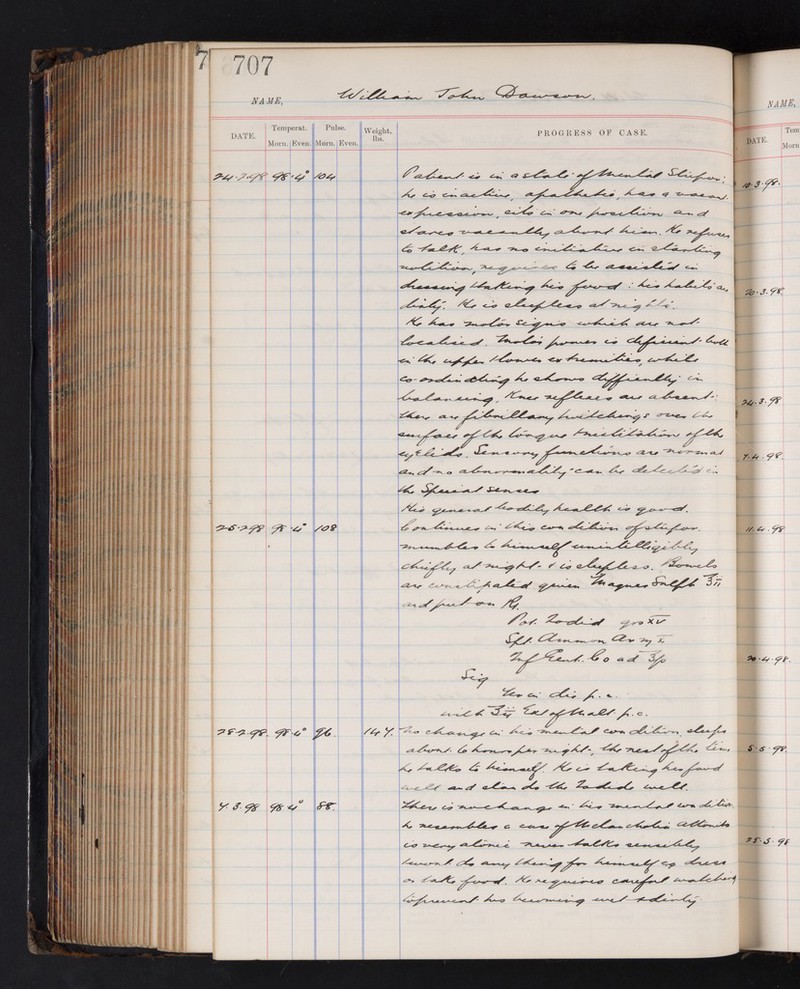 7 707
NAME, William John Dawson.
DATE. Temperat. Morn. Even. Pulse. Morn. Even. Weight, lbs. PROGRESS OF CASE.
24.2.98 98.4° 104 Patient is in a state of Mental Stupor:
he is inactive, apathetic, has a vacant
expression, sits in one position and
stares vacantly about him. He refuses
to talk, has no initiative in starting
volition, requires to be assisted in
dressing & taking his food: his habits are
dirty. He is sleepless at nights.
He has motor signs which are not
localised. Motor power is deficient both
in the upper & lower extremities, while
co-ordinating he shows difficulty in
balancing. Knee reflexes are absent:
there are fibrillary twitchings over the
surface of the tongue & nictitation of the
eyelids. Sensory functions are normal
and no abnormality can be detected in
the Special senses
His general bodily health is good.
25.2.98 98.4° 108 Continues in this condition of stupor.
mumbles to himself unintelligibly
chiefly at night & is sleepless. Bowels
are constipated given Magnes Sulph ʒii
and put on Rx.
Pot. Iodid grs XV
Spt. Ammon Ar m x
Inf Gent. Co ad ℥p
Sig
ter in die p.c.
with ʒii Ext of Malt p.c.
28.2.98. 98.4° 96. 147. No change in his mental condition, sleeps
about 6 hours per night, the rest of the time
he talks to himself. He is taking his food
well and stands the Iodide well.
7.3.98 98.4° 88. There is no change in his mental condition
he resembles a case of Melancholia Attonita
is very atonic never talks sensibly
& wont do any thing for himself eg dress
or take food. He requires careful watching
to prevent his becoming wet & dirty
NAME,
DATE. Tem Morn
10.3.98.
20.3.98.
24.3.98
7.4.98.
11.4.98
20.4.98.
5.5.98.
25.5.98